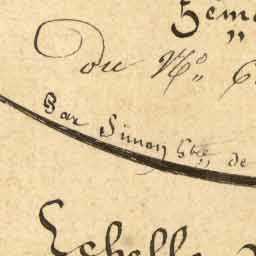 5em
du No. 
Par Simon Ste de
Echelle